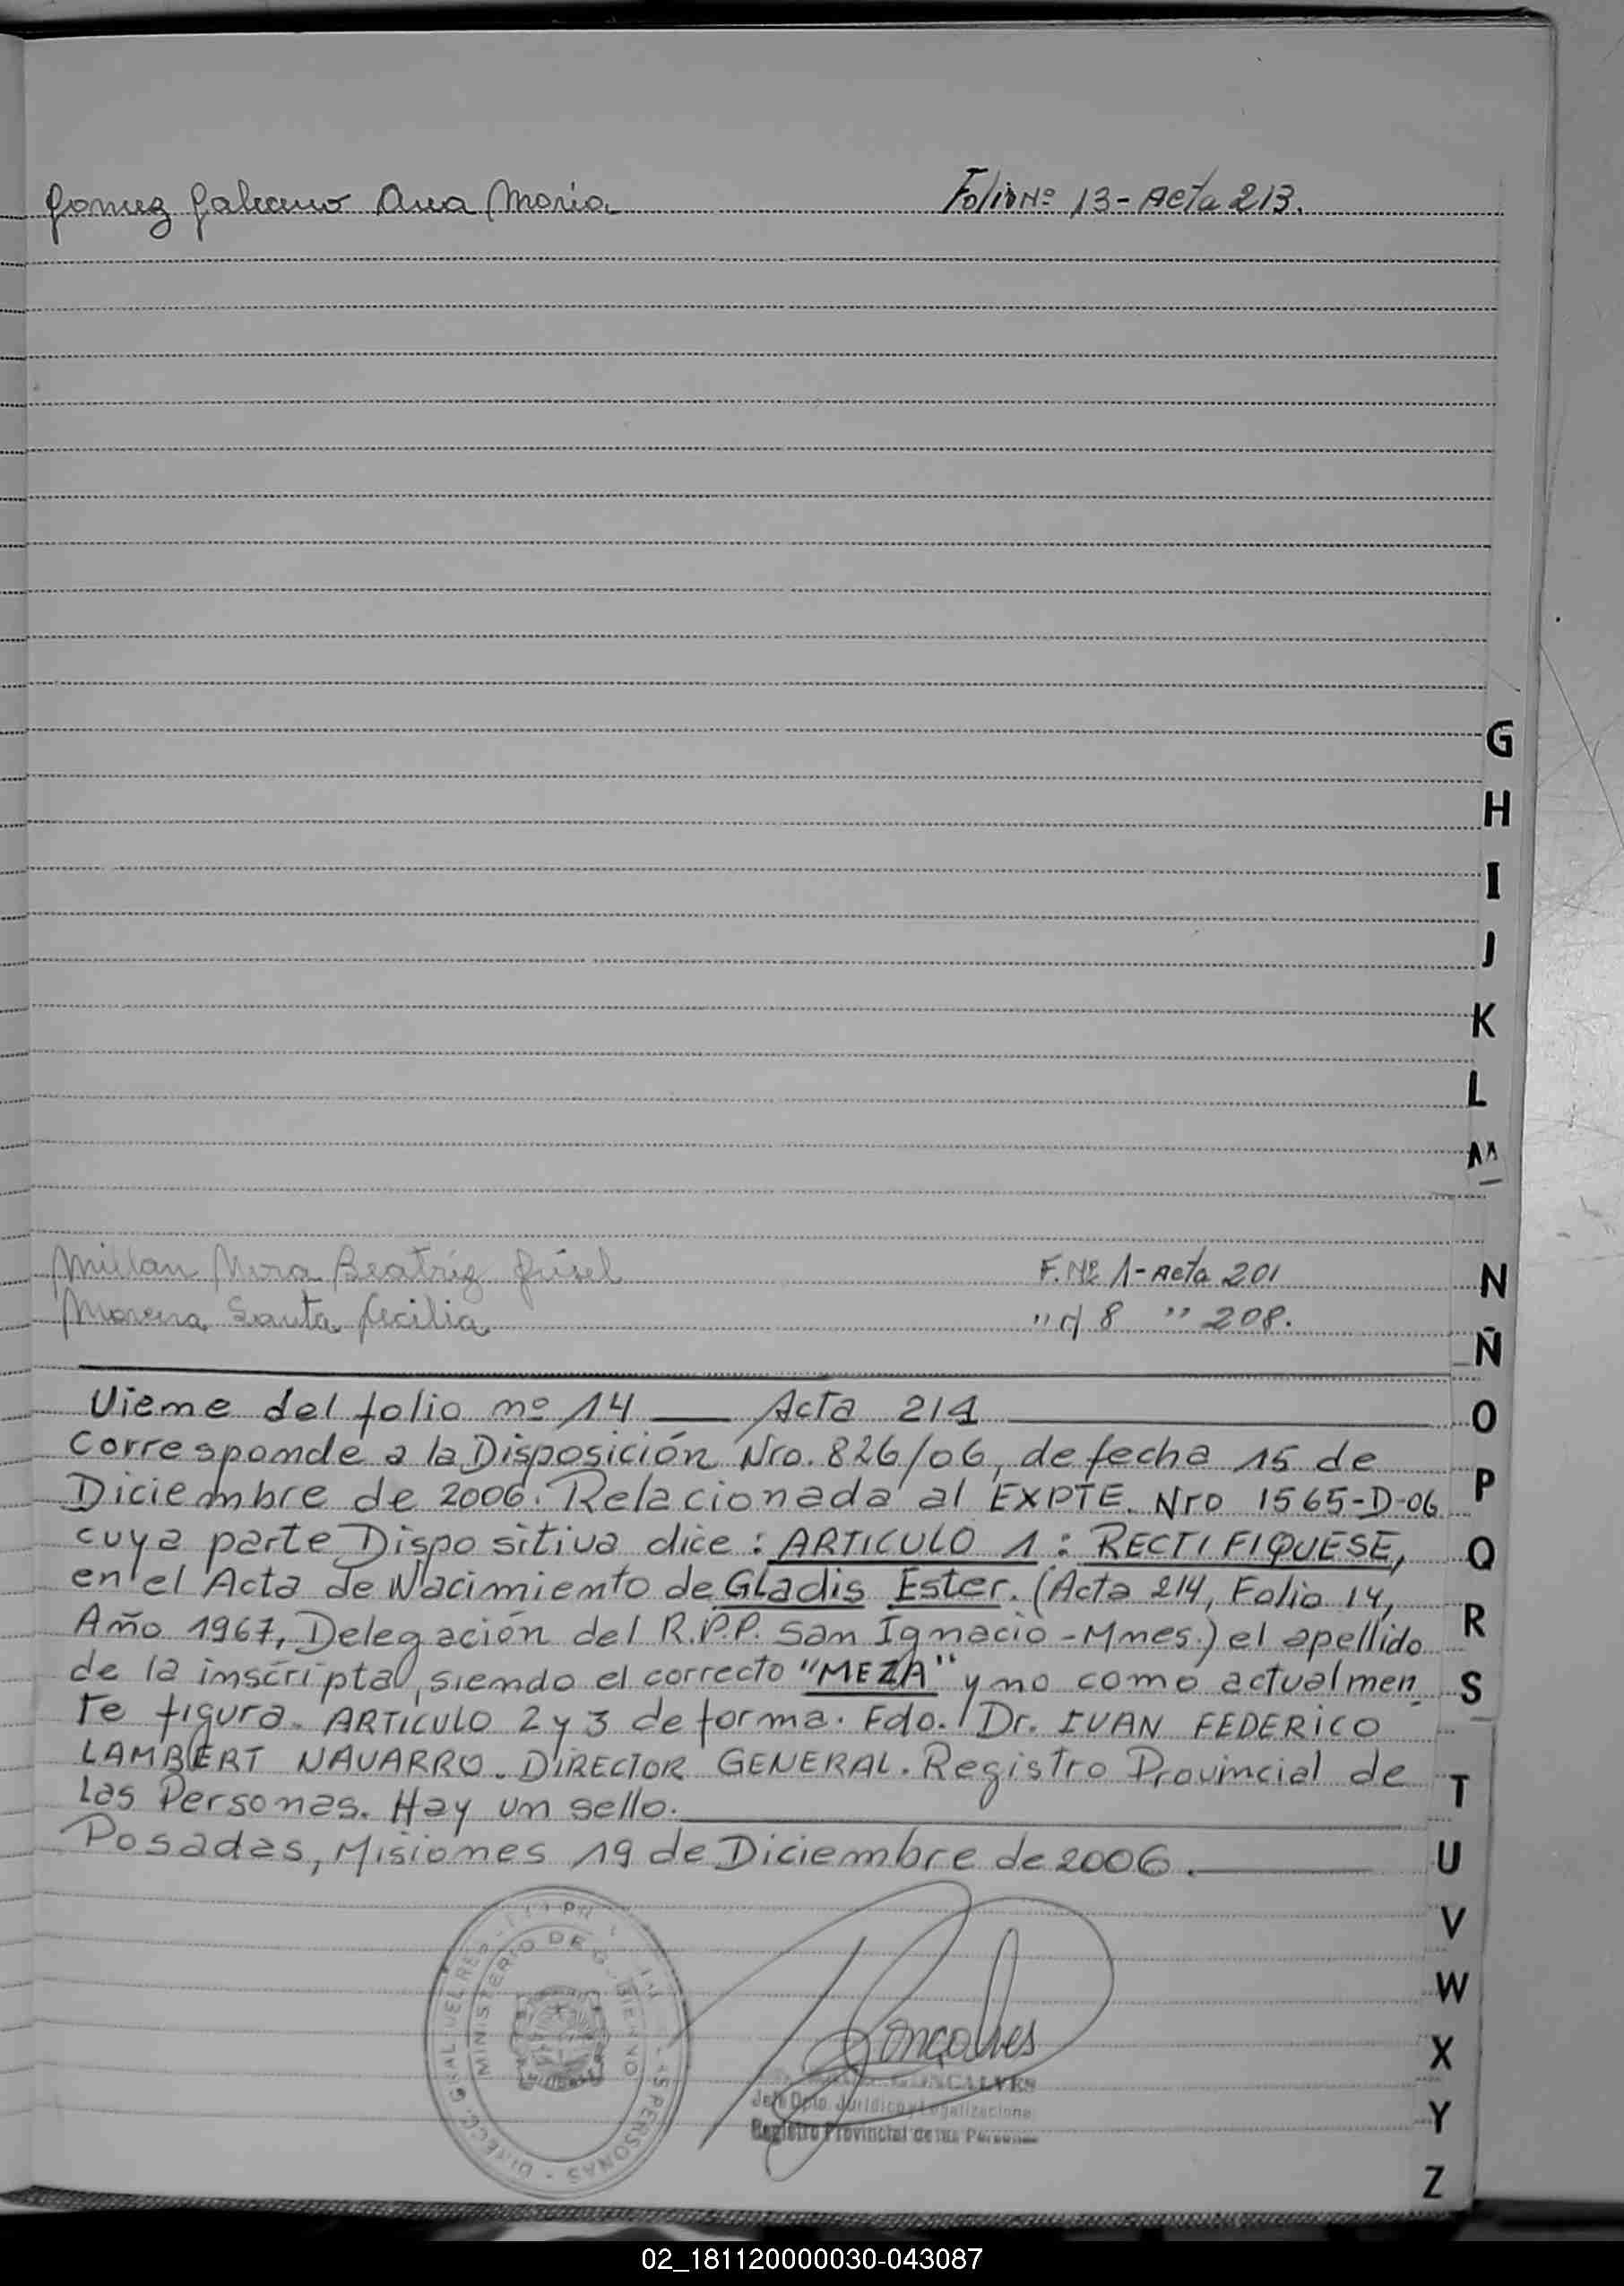 Gomez Galeano Ana Maria Folio Nº 13 - Acta 213.
G
H
I
J
K
L
M
Millan Mora Beatríz Grisel F. Nº 1 - Acta 201
Moreira Santa Cecilia " " 8 " 208.
N
Ñ
Viene del folio nº 14 Acta 214
O
Corresponde a la Disposición Nro. 826/06, de fecha 15 de
Diciembre de 2006. Relacionada al EXPTE. Nro 1565-D-06
P
cuya parte Dispositiva dice: ARTICULO 1: RECTIFIQUESE,
Q
en el Acta de Nacimiento de Gladis Ester. (Acta 214, Folio 14,
Año 1967, Delegación del R.P.P. San Ignacio - Mnes.) el apellido
R
de la inscripta, siendo el correcto "MEZA" y no como actualmen
S
te figura. ARTICULO 2 y 3 de forma. Fdo. Dr. IVAN FEDERICO
LAMBERT NAVARRO. DIRECTOR GENERAL. Registro Provincial de
T
las Personas. Hay un sello.
Posadas, Misiones 19 de Diciembre de 2006.
U
V
MINISTERIO DE GOBIERNO
W
Gonçalves
X
GONCALVES
Jefe Dpto. Jurídico y Legalizaciones
Registro Provincial de las Personas
Y
Z
02_181120000030-043087